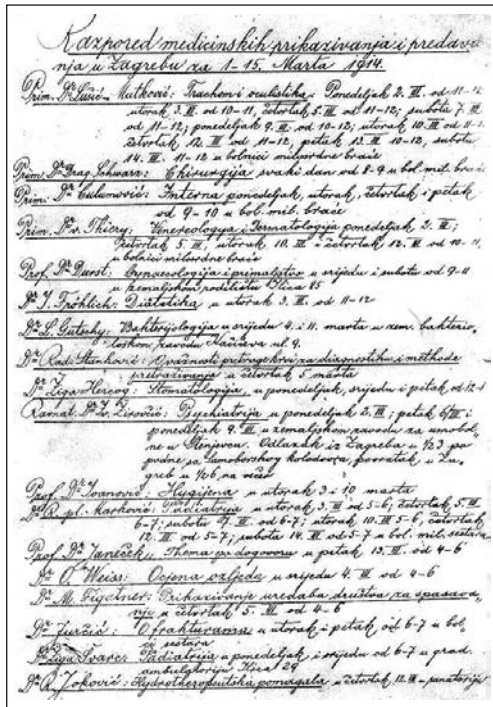 Razpored medicinskih prikazivanja i predava
nja u Zagrebu za 1-15. Marta 1914.
Prim. Dr Lušić-Mutković: Trachom i oculistika - Ponedeljak 2. III. od 11-12
utorak 3. III. od 10-11, četvrtak 5. III. od 11-12; subota 7. III.
od 11-12; ponedeljak 9. III. od 10-12; utorak 10. III. od 11-1.
četvrtak 12. III. od 11-12, petak 13. III. 10-12, subotu
14. III. 11-12 u bolnici milosrdne braće
Prim. Dr Drag. Schwarz: Chirurgija svaki dan od 8-9 u bol. mil. braće
Prim. Dr Čulumović: Interna ponedeljak, utorak, četvrtak i petak
od 9-10 u bol. mil. braće
Prim. Dr v. Thiery: Venereologija i Dermatologija ponedeljak 2. III;
četvrtak 5. III., utorak 10. III. i četvrtak 12. III. od 10-11,
u bolnici milosrdne braće
Prof. Dr Durst: Gynaecologija i primaljstvo u srijedu i subotu od 9-11
u zemaljskom rodilištu Ilica 85
Dr I. Fröhlich: Diätetika u utorak 3. III. od 11-12
Dr L. Gutschy: Bakterijologija u srijedu 4. i 11. marta u zem. bakterio-
loškom zavodu ul. 9.
Dr Rad. Stanković: O važnosti pretrage krvi za diagnostiku i methode
pretraživanja u četvrtak 5 marta
Dr Žiga Herzog: Stomatologija, u ponedeljak, srijedu i petak od 12-1
Ravnat. Dr Iv. Žirović: Psychiatrija u ponedeljak 2. III; petak 6/III i
ponedeljak 9. III u zemaljskom zavodu za umobol-
ne u Stenjevcu. Odlazak iz Zagreba u 1/23 po
podne sa Samoborskog kolodvora, povratak u Za-
greb u 1/26 na večer
Prof. Dr Ivanović: Hygijena u utorak 3 i 10 marta
Dr R. pl. Marković: Pädiatrija u utorak 3. III od 5-6; četvrtak 5. III
6-7; subotu 7. III. od 6-7; utorak 10. III 5-6, četvrtak
12. III od 5-7; subota 14. III od 5-7 u bol. mil. sestara
Prof. Dr Janeček: Thema po dogovoru u petak 13. III. od 4-6
Dr O. Weiss: Ocjena ozljeda u srijedu 4. III od 4-6
Dr M. Prikazivanje uredaba društva za spasava-
nje u četvrtak 5. III od 4-6
Dr Jurčić: O frakturama u utorak i petak od 6-7 u bol-
ci sestara
Dr Žiga Švarc: Pädiatrija u ponedeljak i srijedu od 6-7 u grad.
ambulatoriju Ilica 29
Dr R. Joković: Hydrotherapeutska pomagala u četvrtak 12. III -